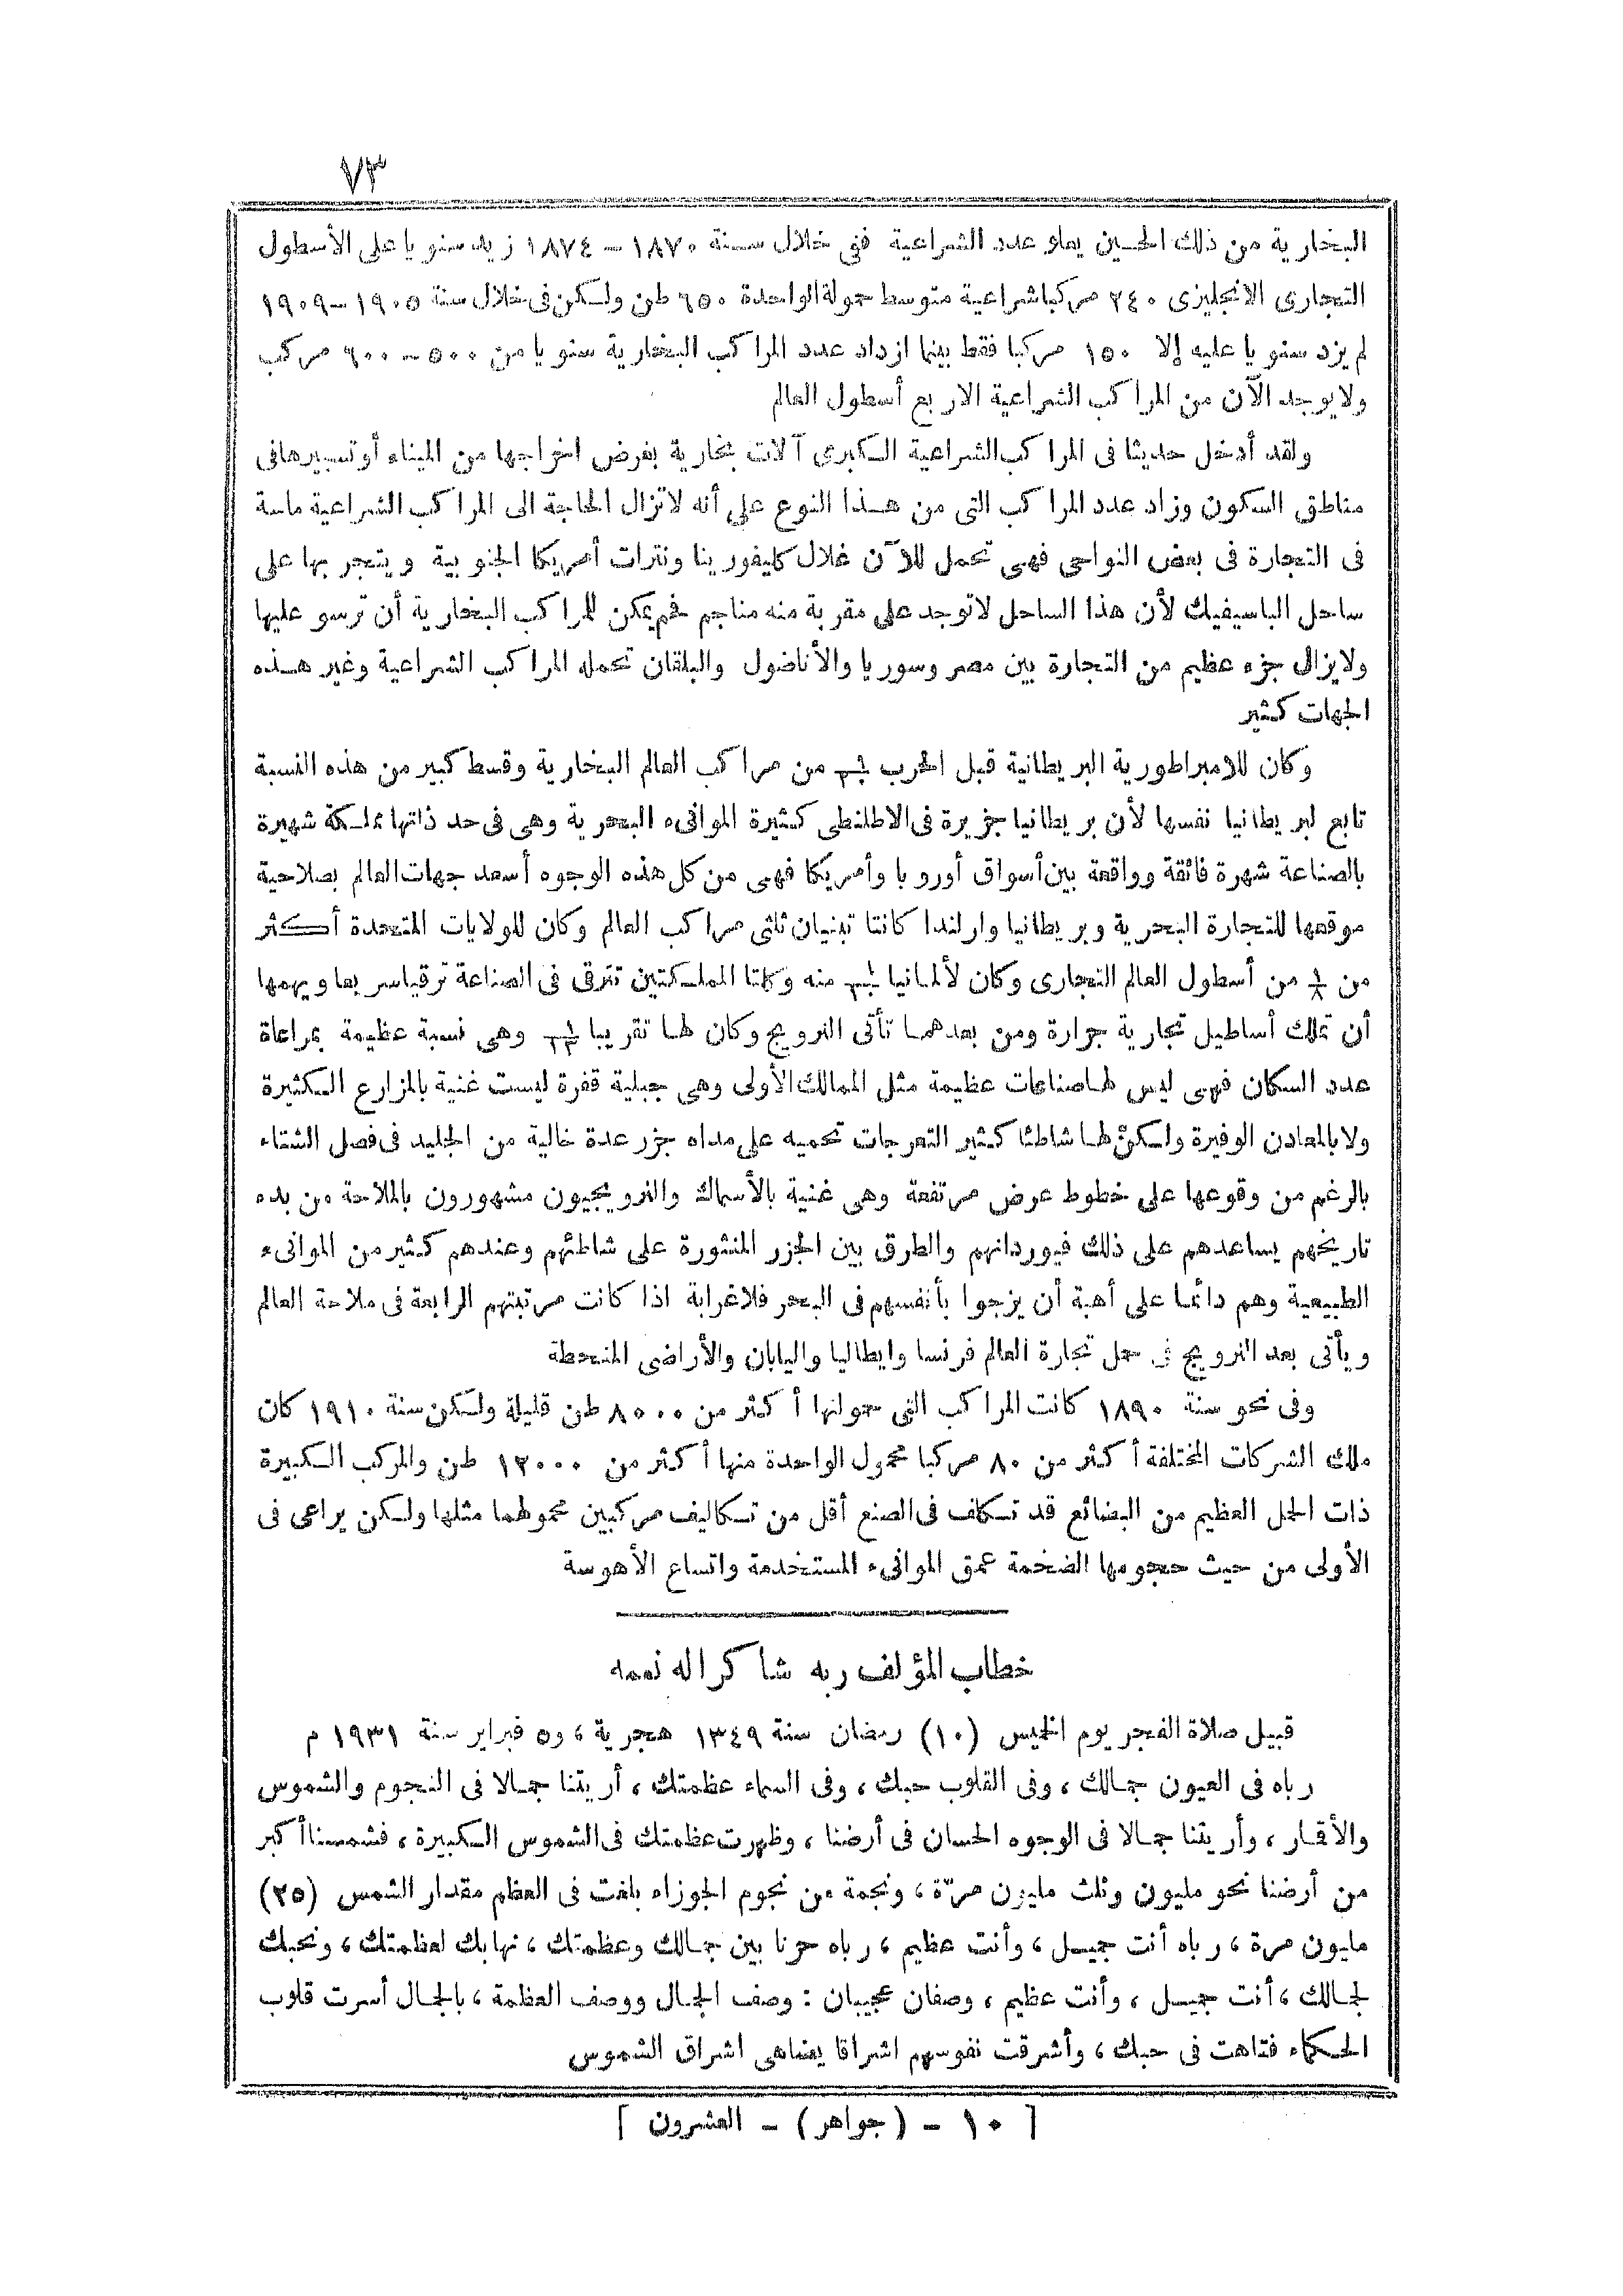 ٧٣
البخارية من ذلك الحين يعلو عدد الشراعية ففى خلال سنة ١٨٧٠ – ١٨٧٤ زيد سنويا على الأسطول
التجارى الانجليزى ٢٤٠ مركبا شراعية متوسط حمولة الواحدة ٦٥٠ طن ولكن فى خلال سنة ١٩٠٥ – ١٩٠٩
لم يزد سنويا عليه إلا ١٥٠ مركبا فقط بينما ازداد عدد المراكب البخارية سنويا من ٥٠٠ – ٦٠٠ مركب
ولا يوجد الآن من المراكب الشراعية الا ربع أسطول العالم
ولقد أدخل حديثا فى المراكب الشراعية الكبرى آلات بخارية بغرض اخراجها من الميناء أو تسييرها فى
مناطق السكون وزاد عدد المراكب التى من هذا النوع على أنه لا تزال الحاجة الى المراكب الشراعية ماسة
فى التجارة فى بعض النواحى فهى تحمل للآن غلال كليفورينا ونترات أمريكا الجنوبية ويتجر بها على
ساحل الباسيفيك لأن هذا الساحل لا توجد على مقربة منه مناجم فحم يمكن للمراكب البخارية أن ترسو عليها
ولا يزال جزء عظيم من التجارة بين مصر وسوريا والأناضول والبلقان تحمله المراكب الشراعية وغير هذه
الجهات كثير
وكان للامبراطورية البريطانية قبل الحرب من مراكب العالم البخارية وقسط كبير من هذه النسبة
تابع لبريطانيا نفسها لأن بريطانيا جزيرة فى الاطلنطى كثيرة الموافىء البحرية وهى فى حد ذاتها مملكة شهيرة
بالصناعة شهرة فائقة وواقعة بين أسواق أوروبا وأمريكا فهى من كل هذه الوجوه أسعد جهات العالم بصلاحية
موقعها للتجارة البحرية وبريطانيا وارلندا كانتا تبنيان ثلثى مراكب العالم وكان للولايات المتحدة أكثر
من ١/٨ من أسطول العالم التجارى وكان لألمانيا منه وكلتا المملكتين تترقى فى الصناعة ترقيا سريعا ويهمها
أن تملك أساطيل تجارية جرارة ومن بعدهما تأتى النرويج وكان لها تقريبا وهى نسبة عظيمة بمراعاة
عدد السكان فهى ليس لها صناعات عظيمة مثل الممالك الأولى وهى جبلية قفرة ليست غنية بالمزارع الكثيرة
ولا بالمعادن الوفيرة ولكنّ لها شاطئا كثير التعرجات تحميه على مداه جزر عدة خالية من الجليد فى فصل الشتاء
بالرغم من وقوعها على خطوط عرض مرتفعة وهى غنية بالأسماك والنرويجيون مشهورون بالملاحة من بدء
تاريخهم يساعدهم على ذلك فيورداتهم والطرق بين الجزر المنثورة على شاطئهم وعندهم كثير من الموانىء
الطبيعية وهم دائما على أهبة أن يزجوا بأنفسهم فى البحر فلا غرابة اذا كانت مرتبتهم الرابعة فى ملاحة العالم
ويأتى بعد النرويج فى حمل تجارة العالم فرنسا وايطاليا واليابان والأراضى المنحطة
وفى نحو سنة ١٨٩٠ كانت المراكب التى حمولتها أكثر من ٨٥٠٠ طن قليلة ولكن سنة ١٩١٠ كان
ملك الشركات المختلفة أكثر من ٨٠ مركبا محمول الواحدة منها أكثر من ١٢٠٠٠ طن والمركب الكبيرة
ذات الحمل العظيم من البضائع قد تتكلف فى الصنع أقل من تكاليف مركبين محمولهما مثلها ولكن يراعى فى
الأولى من حيث حجومها الضخمة عمق الموافىء المستخدمة واتساع الأهوسة
خطاب المؤلف ربه شاكرا له نعمه
قبيل صلاة الفجر يوم الخميس (١٠) رمضان سنة ١٣٤٩ هجرية، و٥ فبراير سنة ١٩٣١ م
رباه فى العيون جمالك، وفى القلوب حبك، وفى السماء عظمتك، أريتنا جمالا فى النجوم والشموس
والأقمار، وأريتنا جمالا فى الوجوه الحسان فى أرضنا، وظهرت عظمتك فى الشموس الكبيرة، فشمسنا أكبر
من أرضنا نحو مليون وثلث مليون مرّة، ونجمة من نجوم الجوزاء بلغت فى العظم مقدار الشمس (٢٥)
مليون مرة، رباه أنت جميل، وأنت عظيم، رباه حرنا بين جمالك وعظمتك، نهابك لعظمتك، ونحبك
لجمالك، أنت جميل، وأنت عظيم، وصفان عجيبان : وصف الجمال ووصف العظمة، بالجمال أسرت قلوب
الحكماء فتاهت فى حبك، وأشرقت نفوسهم اشراقا يضاهى اشراق الشموس
[ ١٠ – (جواهر) – العشرون ]